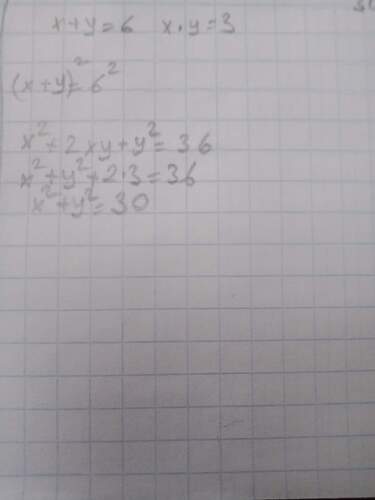 x+y=6 x·y=3
(x+y)²=6²
x²+2xy+y²=36
x²+y²+2·3=36
x²+y²=30